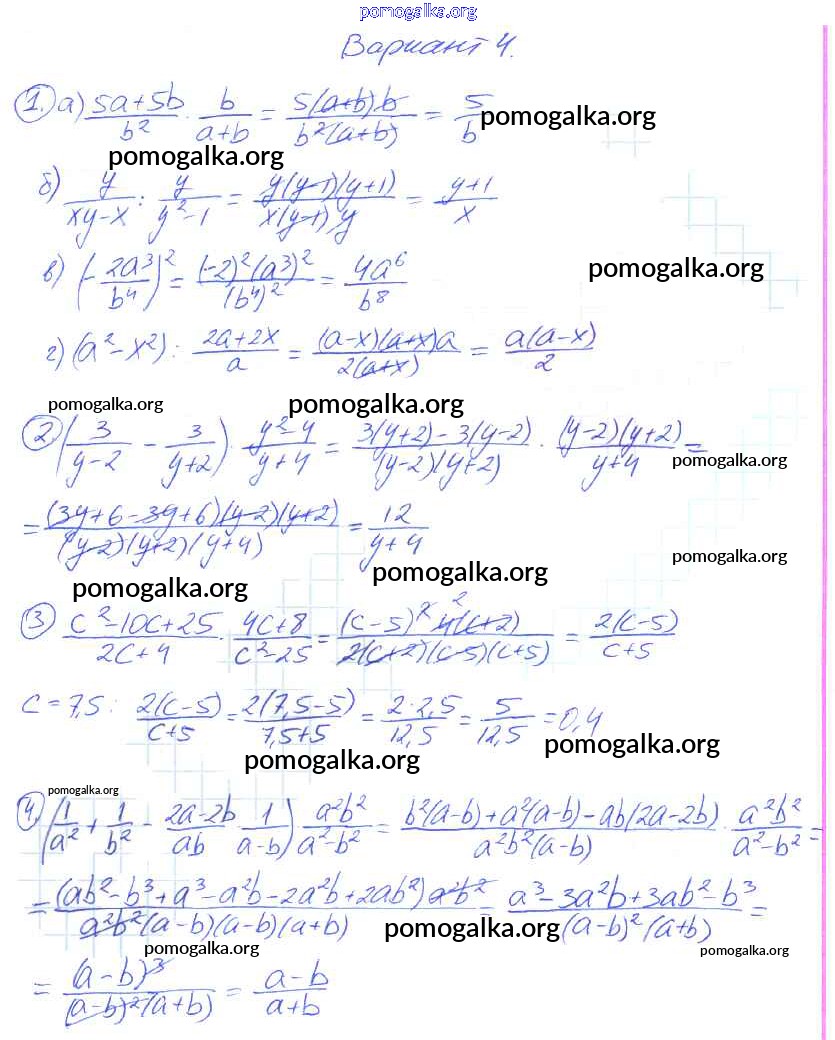 pomogalka.org
Вариант 4.
1. а) (5a+5b)/b² · b/(a+b) = 5(a+b)b/(b²(a+b)) = 5/b pomogalka.org
pomogalka.org
б) y/(xy-x) : y/(y²-1) = y(y-1)(y+1)/(x(y-1)y) = (y+1)/x
в) (-2a³/b⁴)² = (-2)²(a³)²/(b⁴)² = 4a⁶/b⁸ pomogalka.org
г) (a²-x²) : (2a+2x)/a = (a-x)(a+x)a/(2(a+x)) = a(a-x)/2
pomogalka.org pomogalka.org
2. (3/(y-2) - 3/(y+2)) · (y²-4)/(y+4) = (3(y+2)-3(y-2))/((y-2)(y+2)) · (y-2)(y+2)/(y+4) = pomogalka.org
= (3y+6-3y+6)(y-2)(y+2)/((y-2)(y+2)(y+4)) = 12/(y+4)
pomogalka.org
pomogalka.org pomogalka.org
3 (c²-10c+25)/(2c+4) · (4c+8)/(c²-25) = (c-5)² 4(c+2) 2/(2(c+2)(c-5)(c+5)) = 2(c-5)/(c+5)
c=7,5: 2(c-5)/(c+5) = 2(7,5-5)/(7,5+5) = 2·2,5/12,5 = 5/12,5 = 0,4
pomogalka.org pomogalka.org
pomogalka.org
4. (1/a² + 1/b² - (2a-2b)/ab · 1/(a-b)) a²b²/(a²-b²) = (b²(a-b)+a²(a-b)-ab(2a-2b))/(a²b²(a-b)) · a²b²/(a²-b²) =
= (ab²-b³+a³-a²b-2a²b+2ab²)a²b²/(a²b²(a-b)(a-b)(a+b)) = (a³-3a²b+3ab²-b³)/((a-b)²(a+b)) =
pomogalka.org pomogalka.org pomogalka.org
= (a-b)³/((a-b)²(a+b)) = (a-b)/(a+b)